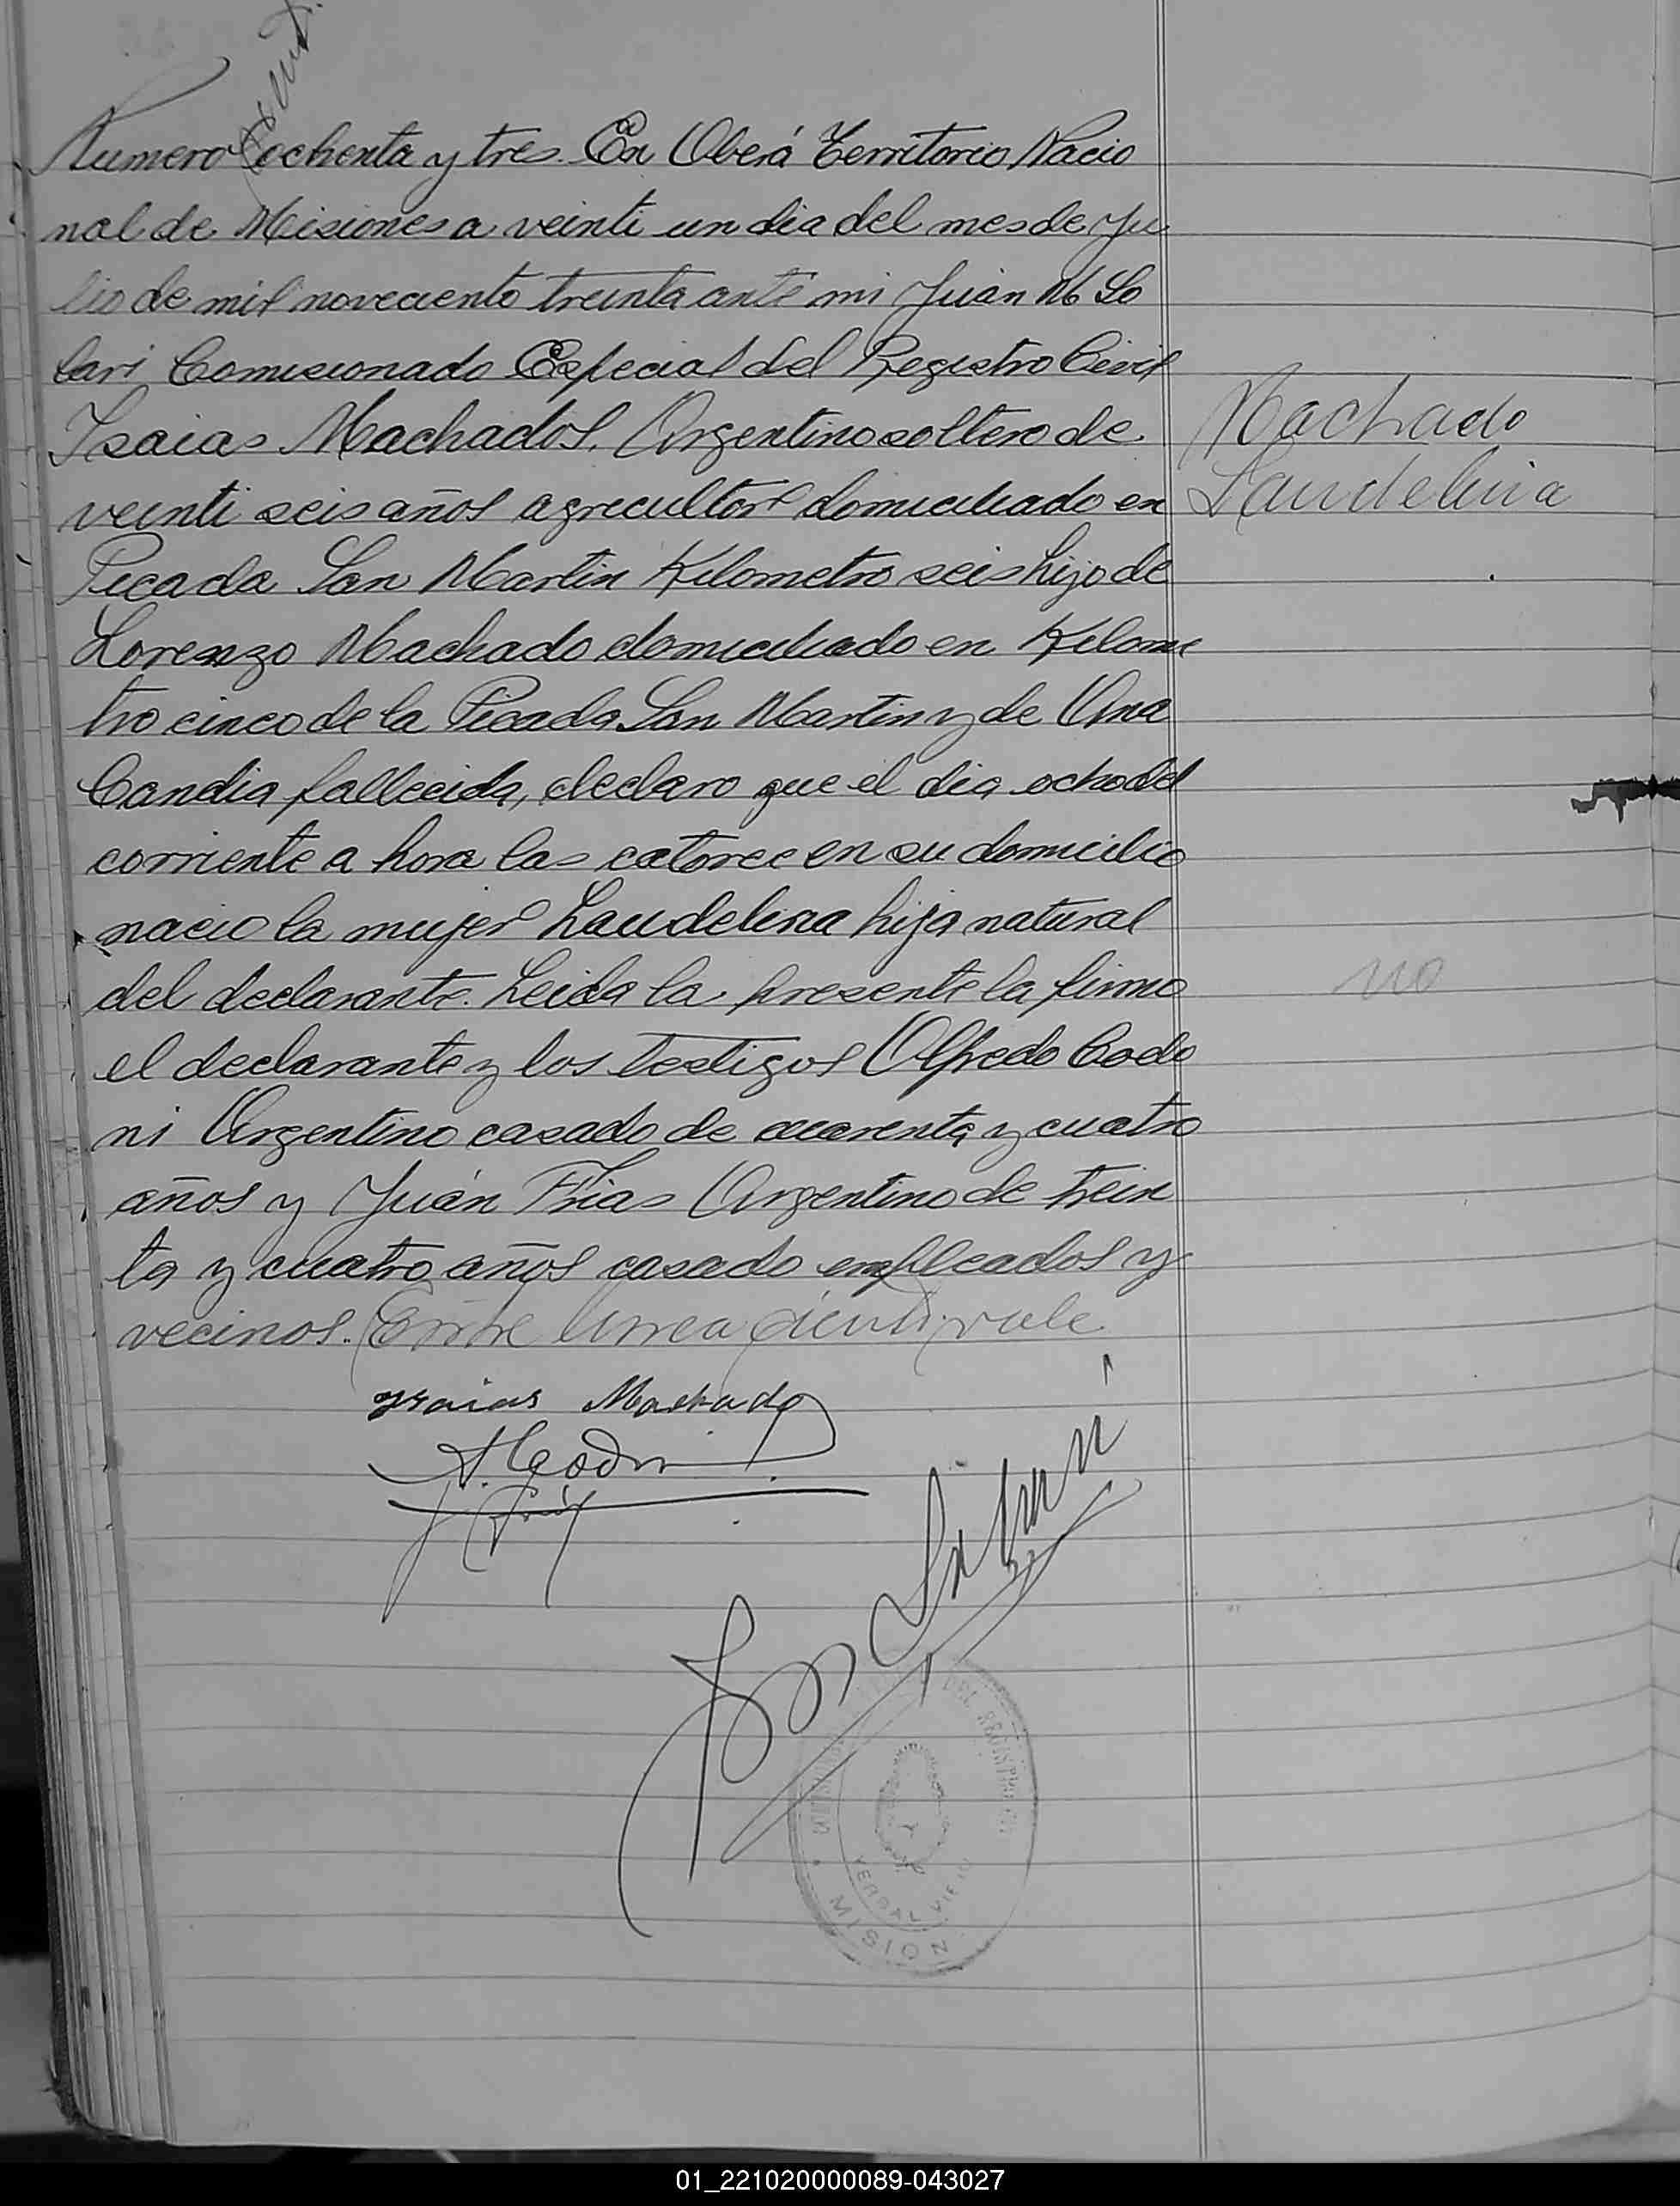 cienti
Numero ochenta y tres. En Oberá Territorio Nacio
nal de Misiones a veinti un dia del mes de Ju
lio de mil noveciento treinta ante mi Juan M So
lari Comisionado Especial del Registro Civil
Isaias Machados, Argentino soltero de
veinti seis años agricultor domiciliado en
Picada San Martin Kilometro seis hijo de
Lorenzo Machado domiciliado en Kilome
tro cinco de la Picada San Martin y de Ana
Candia fallecida, declaro que el dia ocho del
corriente a hora las catorce en su domicilio
nacio la mujer Laudelina hija natural
del declarante. Leida la presente la firmo
el declarante y los testigos Alfredo Codo
ni Argentino casado de cuarenta y cuatro
años y Juán Frias Argentino de trein
ta y cuatro años casado empleados y
vecinos. Entre linea cienti, vale.
Machado
Laudelina
no
ysaias Machado
A. Codoni
J. Frias
J M Solari
DEL REGISTRO
YERBAL VIEJO
MISION
01_221020000089-043027